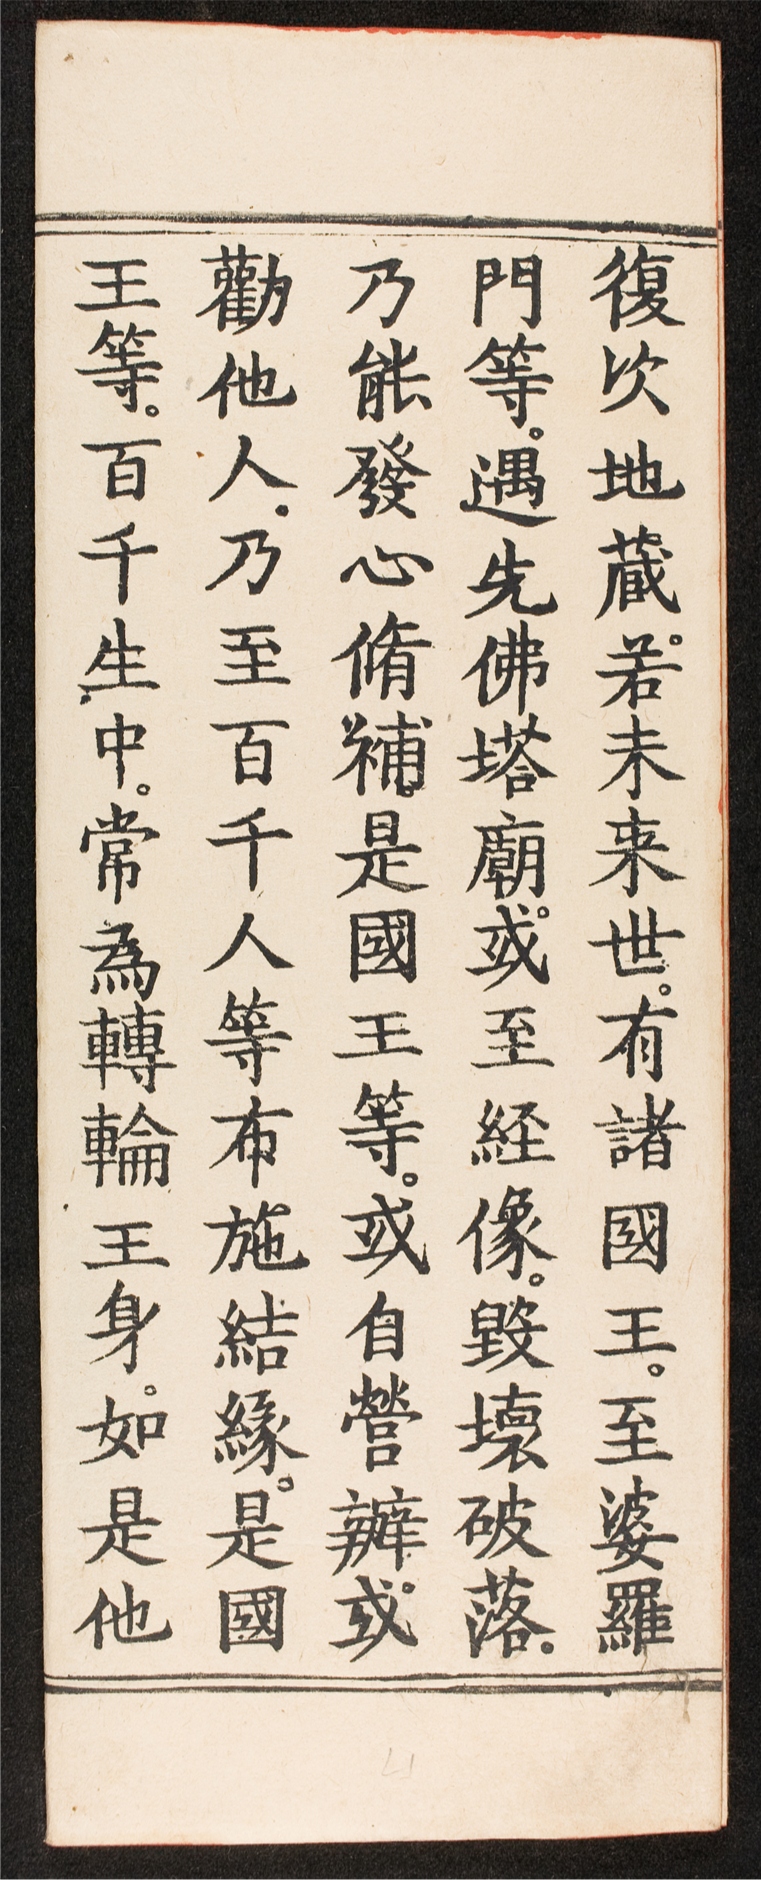 復次地蔵。若未来世。有諸國王。至婆羅
門等。遇先佛塔廟。或至経像。毀壞破落。
乃能發心脩補。是國王等。或自營辦。或
勸他人。乃至百千人等布施結緣。是國
王等。百千生中。常為轉輪王身。如是他